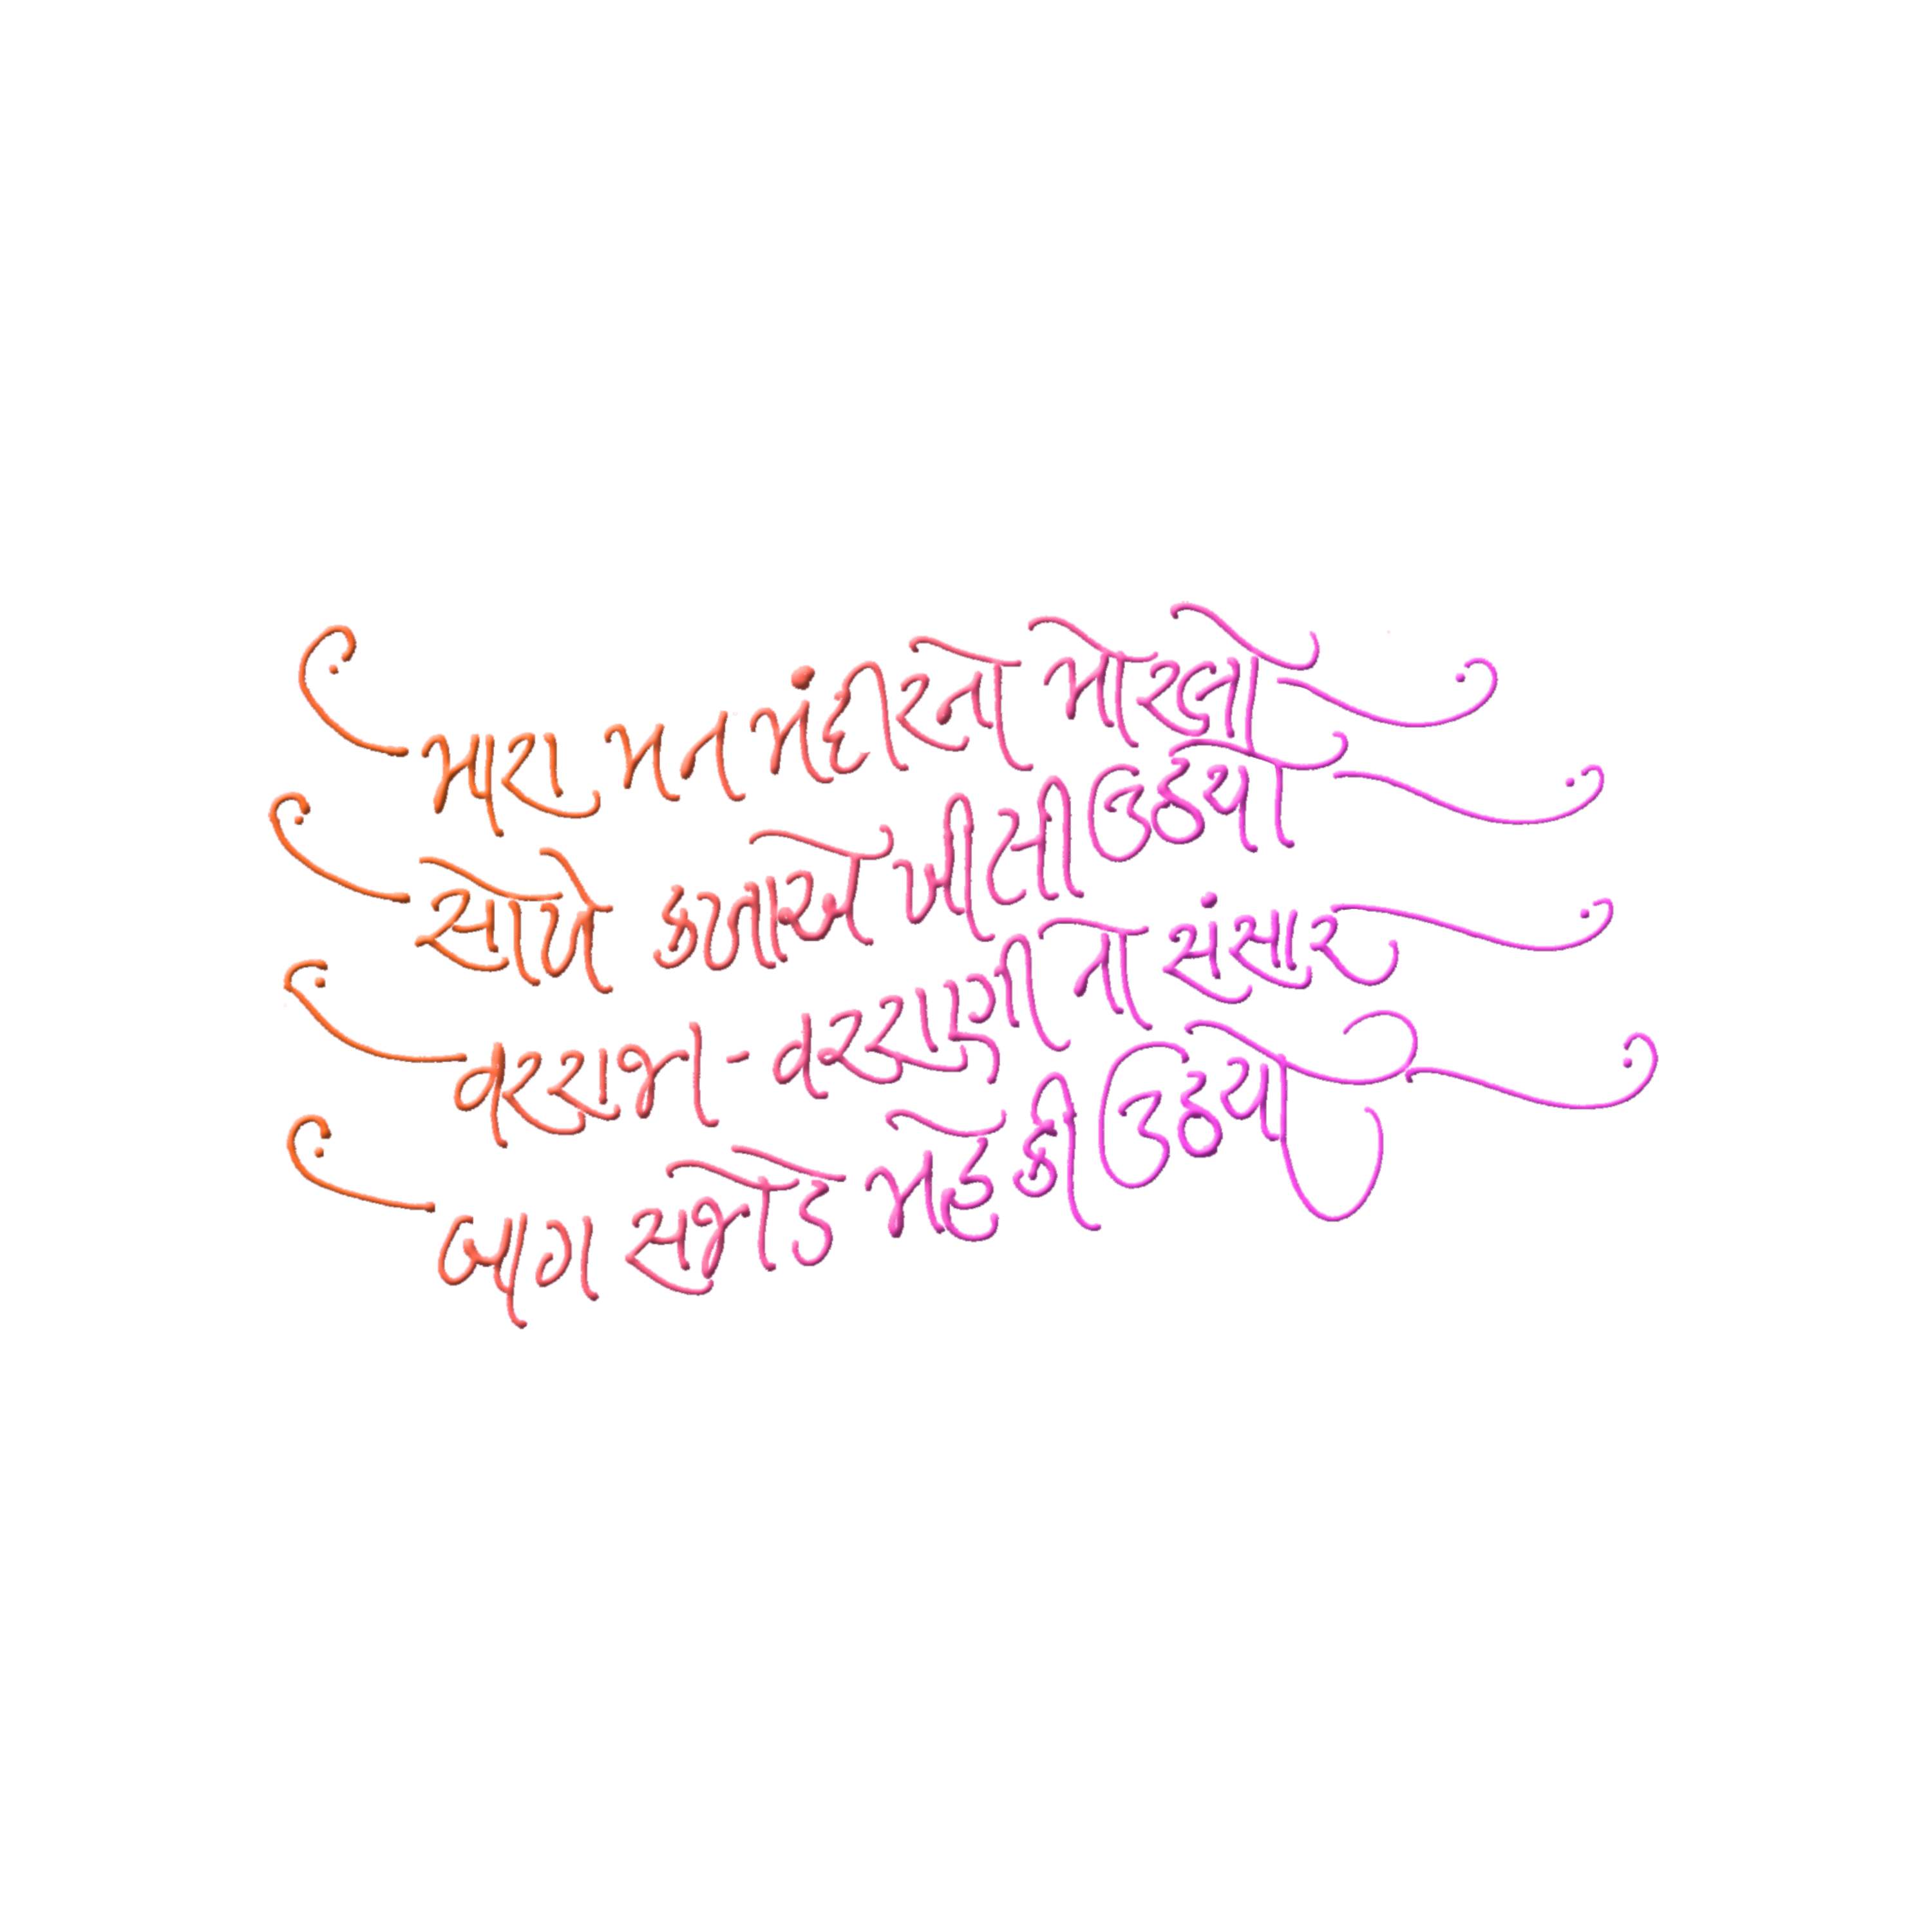 મારા મન મંદીરનો મોરલો
સોળે કળાએ ખીલી ઉઠયો
વરરાજા - વરરાણી નો સંસાર
બાગ સજોડે મહેકી ઉઠયો